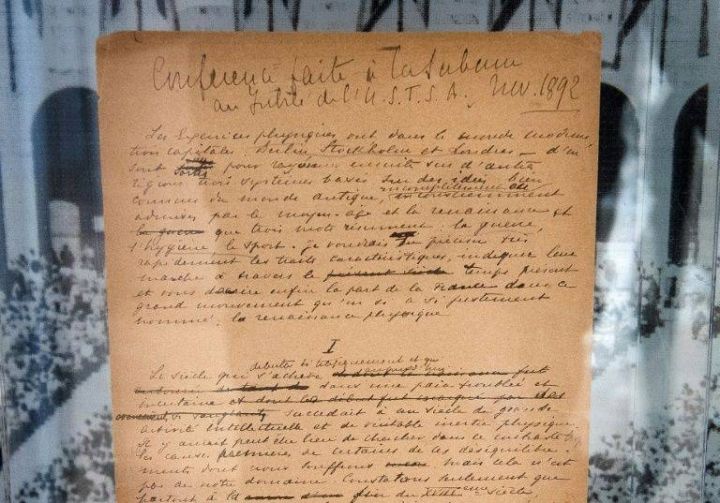 Conférence faite à la Sorbonne
au Jubilé de l'U.S.F.S.A. Nov. 1892
Les Exercices physiques ont dans le monde moderne
trois capitales: Berlin, Stockholm et Londres - d'où
sont sortis pour rayonner ensuite sur d'autres
régions trois systèmes basés sur des idées bien
connues du monde antique, incomplètement
admises par le moyen-âge et la renaissance et
que trois mots résument: la guerre,
l'hygiène, le sport. Je voudrais préciser
rapidement les traits caractéristiques, indiquer leur
marche à travers le temps présent
et vous dire enfin la part de la France dans ce
grand mouvement qu'on a si justement
nommé: la renaissance physique.
I
Le siècle qui s'achève
dans une paix troublée et
incertaine
succédait à un siècle de grande
activité intellectuelle et de véritable inertie physique.
Il y aurait peut être lieu de chercher dans ce contraste
la cause première de certains de ces déséquilibre-
ments dont nous souffrons. Mais cela n'est
pas de notre domaine. Constatons seulement que
partout à la fin du siècle